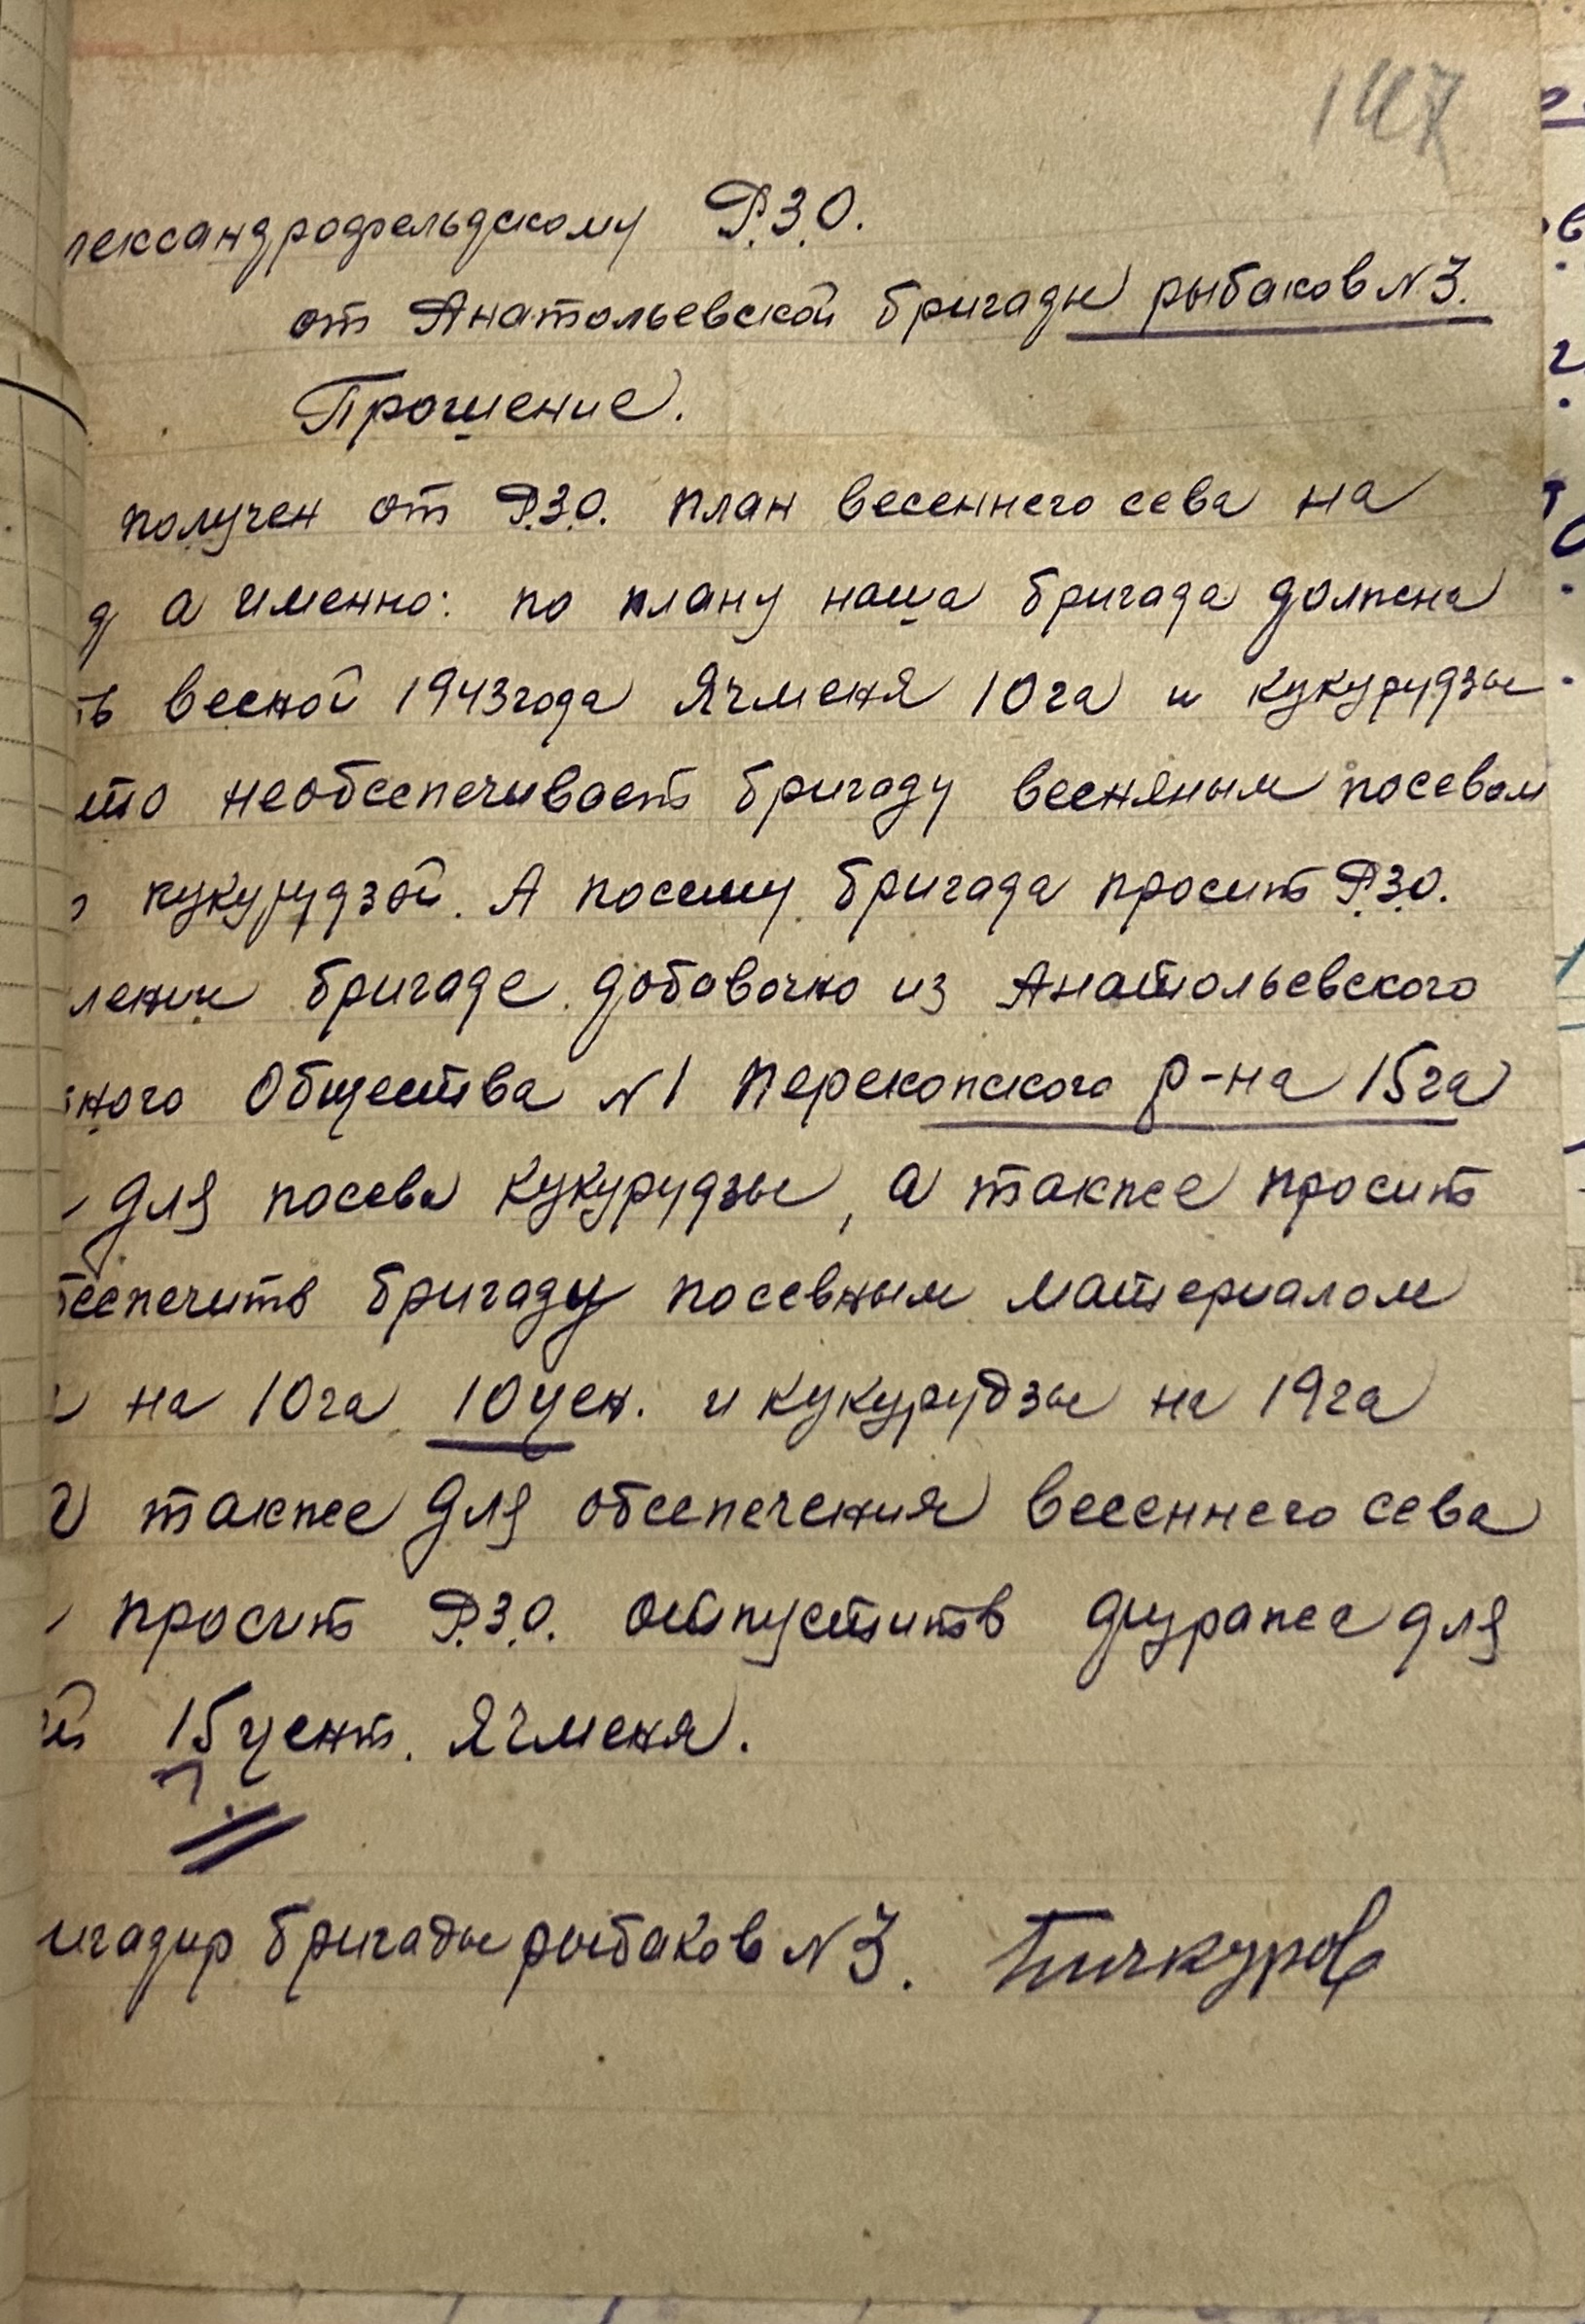 147
лександрофельдскому Р.З.О.
от Анатольевской бригады рыбаков N3.
Прошение.
получен от Р.З.О. план весеннего сева на
д а именно: по плану наша бригада должна
ть весной 1943года Ячменя 10га и кукурудзы
что необеспечивает бригаду весняным посевом
кукурудзой. А посему бригада просит Р.З.О.
лении бригаде добавочно из Анатольевского
ного Общества N1 Перекопского р-на 15га
для посева кукурудзы, а также просит
беспечить бригаду посевным материалом
на 10га 10цен. и кукурудзы на 19га
а также для обеспечения весеннего сева
просит Р.З.О. отпустить фуража для
й 15цент. Ячменя.
игадир бригады рыбаков N3.